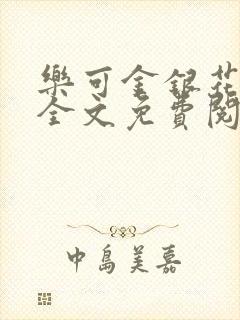 樂可金銀花
全文免費閱
中島美嘉